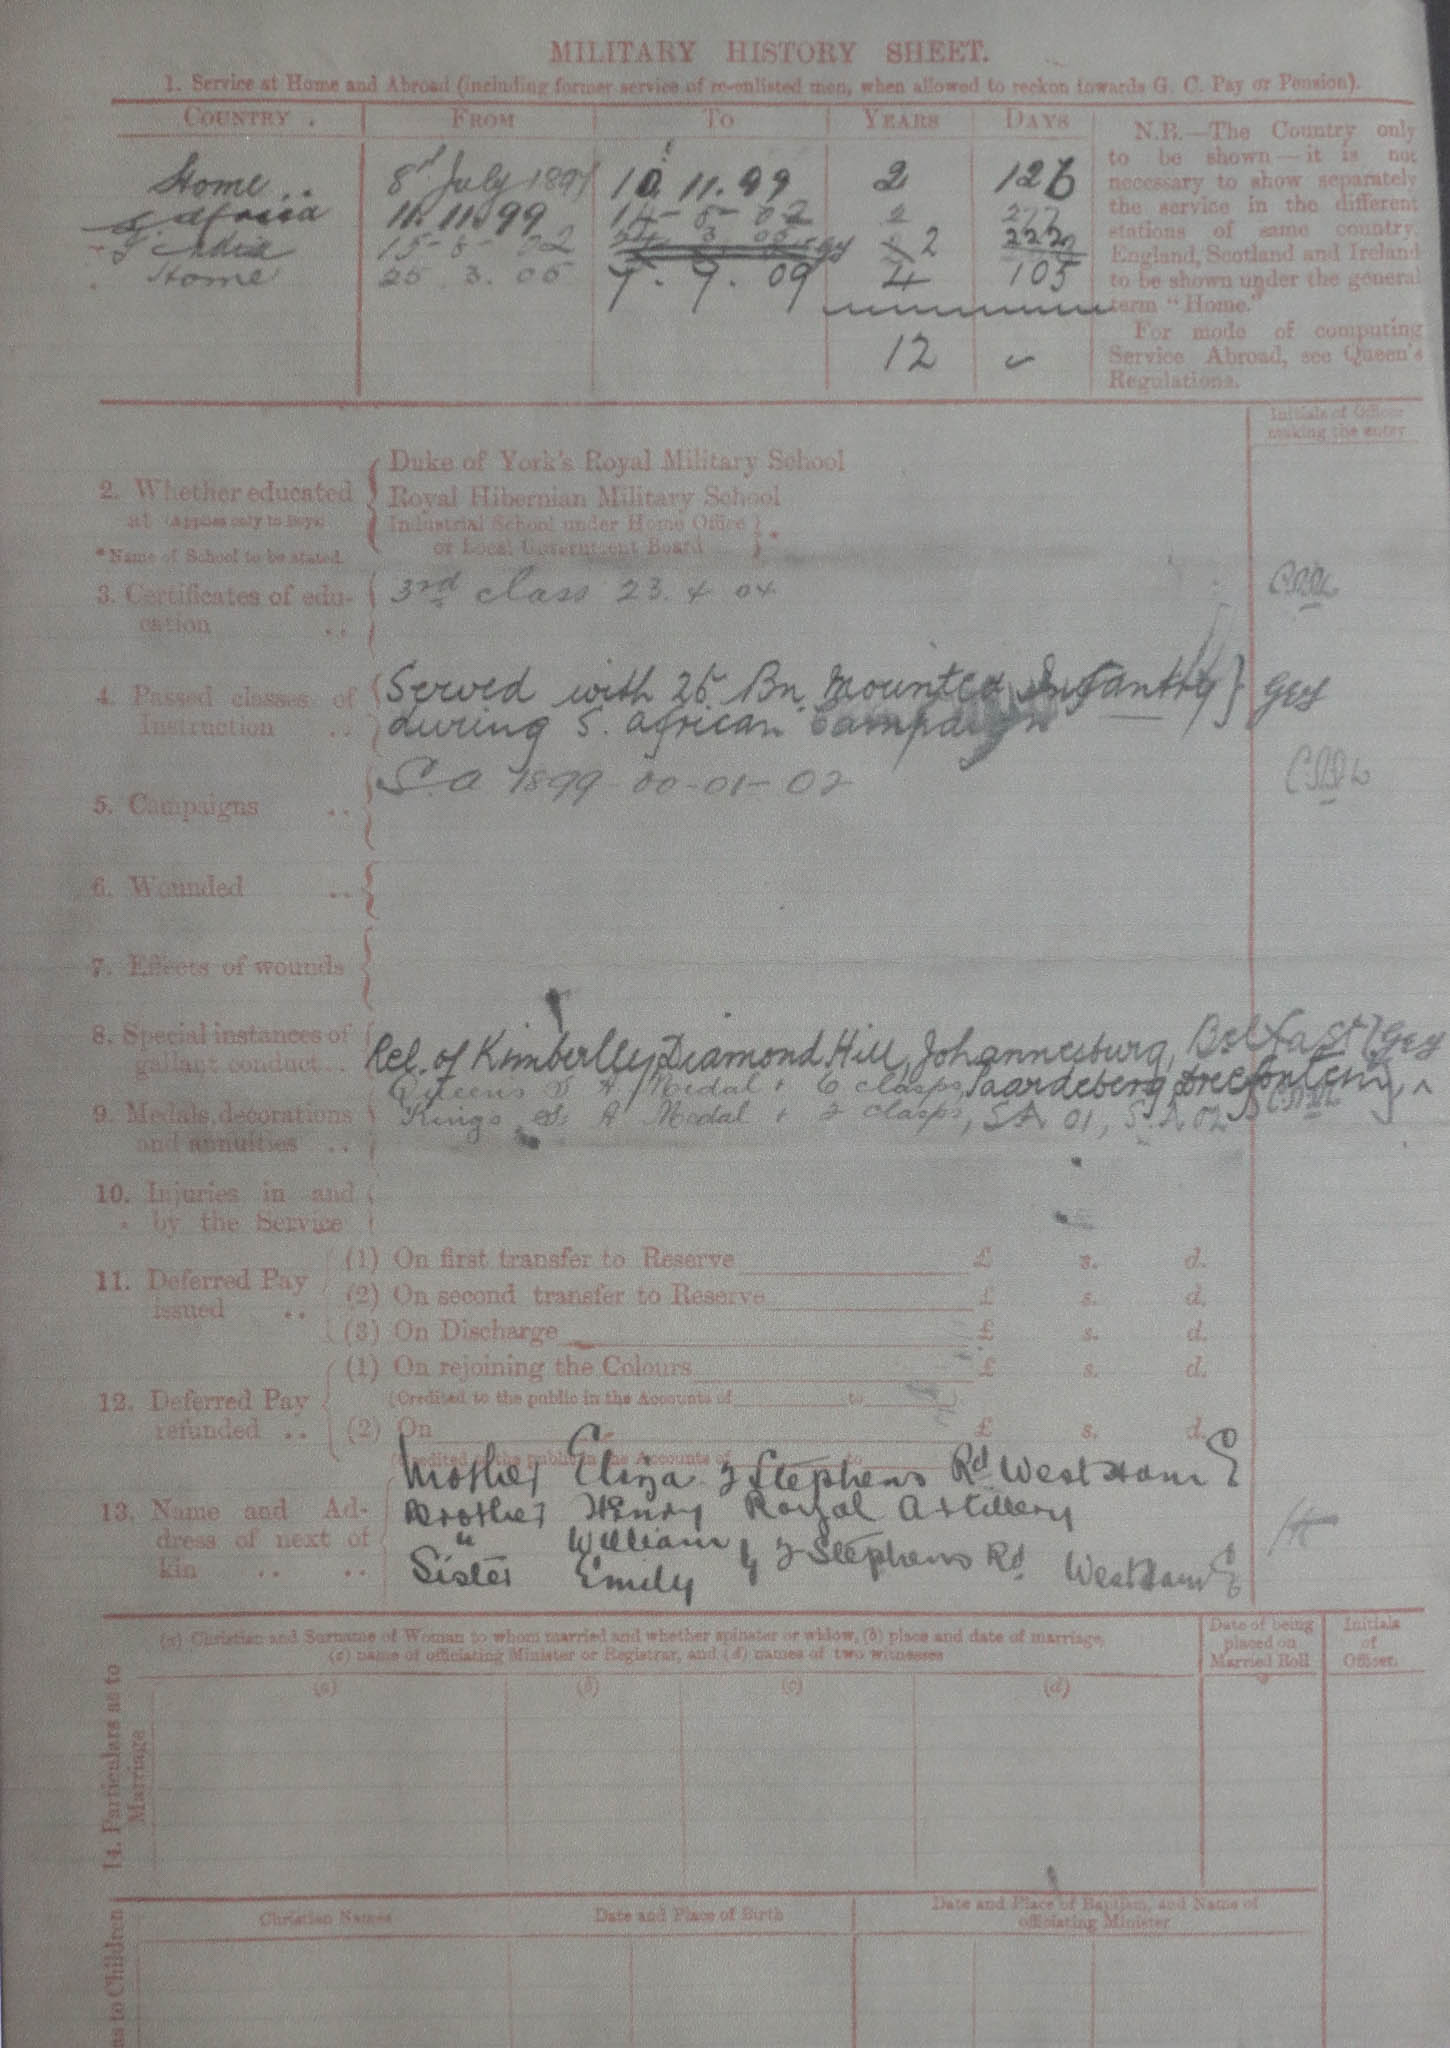 MILITARY HISTORY SHEET.
1. Service at Home and Abroad (including former service of re-enlisted men, when allowed to reckon towards G. C. Pay or Pension).
COUNTRY. FROM TO YEARS DAYS
Home.. 8 July 1897 10. 11. 99 2 126
S Africa 11. 11. 99 14- 8- 02 2 277
India 15- 8- 02 2 222
Home 25. 3. 05 7. 7. 09 4 105
12
N.B.—The Country only
to be shown—it is not
necessary to show separately
the service in the different
stations of same country.
England, Scotland and Ireland
to be shown under the general
term "Home."
For mode of computing
Service Abroad, see Queen's
Regulations.
Initials of Officer
making the entry
2. Whether educated
at (Applies only to Boys)
*Name of School to be stated.
Duke of York's Royal Military School
Royal Hibernian Military School
Industrial School under Home Office
or Local Government Board } *
3. Certificates of edu-
cation ..
3rd class 23. 4 04
4. Passed classes of
Instruction ..
Served with 25 Bn. Mounted Infantry
during S. African Campaign
5. Campaigns ..
S.A 1899-00-01-02
6. Wounded ..
7. Effects of wounds
8. Special instances of
gallant conduct..
Rel. of Kimberlley, Diamond Hill, Johannesburg, Belfast
Queens S A Medal + 6 clasps, Paardeberg Dreifontein
9. Medals, decorations
and annuities ..
Kings S. A Medal + 2 clasps, SA 01, S.A 02
10. Injuries in and
by the Service
11. Deferred Pay
issued ..
(1) On first transfer to Reserve £ s. d.
(2) On second transfer to Reserve £ s. d.
(3) On Discharge £ s. d.
12. Deferred Pay
refunded ..
(1) On rejoining the Colours £ s. d.
(Credited to the public in the Accounts of to )
(2) On £ s. d.
(Credited to the public in the Accounts of to
13. Name and Ad-
dress of next of
kin .. ..
Mother Eliza 7 Stephens Rd West Ham E
Brother Henry Royal Artillery
" William
Sister Emily } 7 Stephens Rd West Ham E
14. Particulars as to
Marriage
(a) Christian and Surname of Woman to whom married and whether spinster or widow, (b) place and date of marriage,
(c) name of officiating Minister or Registrar, and (d) names of two witnesses
Date of being
placed on
Married Roll
Initials
of
Officer.
(a) (b) (c) (d)
to Children
Christian Names
Date and Place of Birth
Date and Place of Baptism, and Name of
officiating Minister